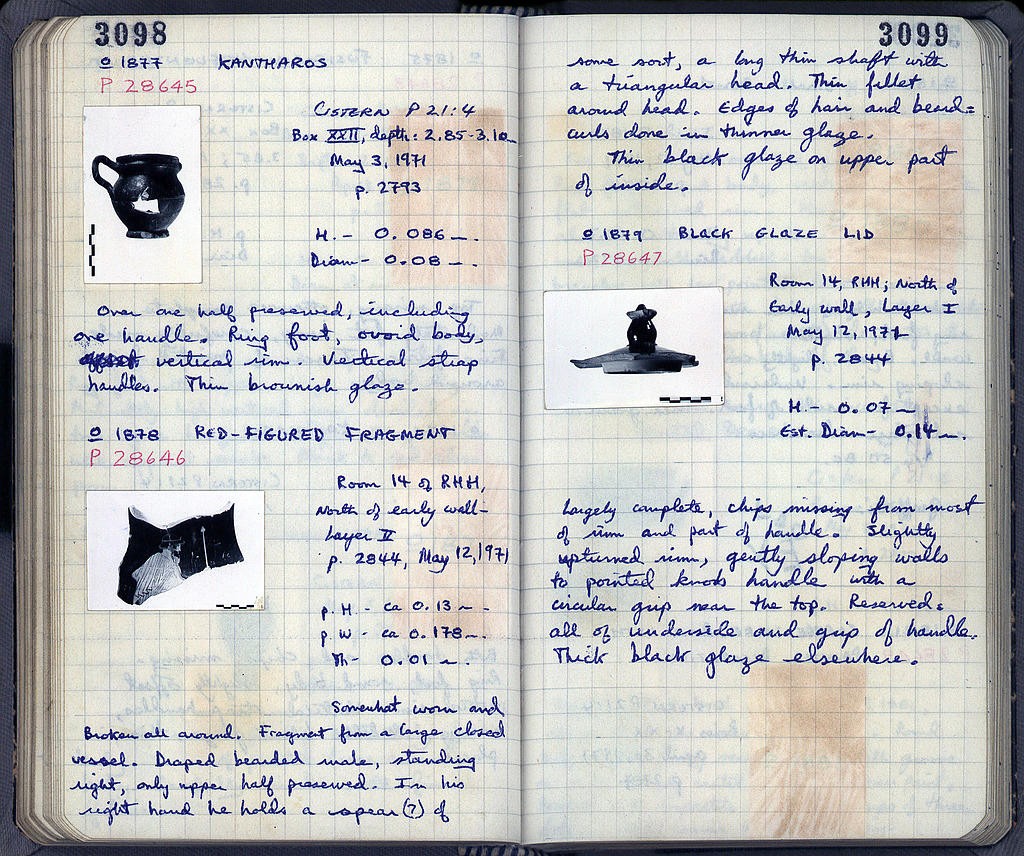 3098
o 1877 KANTHAROS
P 28645
CISTERN P 21:4
Box XXII, depth: 2.85-3.10m
May 3, 1971
p. 2793
H. - 0.086 m.
Diam - 0.08 m.
Over one half preserved, including
one handle. Ring foot, ovoid body,
vertical rim. Vertical strap
handles. Thin brownish glaze.
o 1878 RED-FIGURED FRAGMENT
P 28646
Room 14 of RHH,
North of early wall-
Layer II
p. 2844, May 12, 1971
p. H - ca 0.13 m.
p. W - ca 0.178 m.
Th - 0.01 m.
Somewhat worn and
Broken all around. Fragment from a large closed
vessel. Draped bearded male, standing
right, only upper half preserved. In his
right hand he holds a spear (?) of
3099
some sort, a long thin shaft with
a triangular head. Thin fillet
around head. Edges of hair and beard-
curls done in thinner glaze.
Thin black glaze on upper part
of inside.
o 1879 BLACK GLAZE LID
P 28647
Room 14, RHH; North of
Early wall, Layer I
May 12, 1971
p. 2844
H. - 0.07 m
Est. Diam - 0.14 m.
Largely complete, chips missing from most
of rim and part of handle. Slightly
upturned rim, gently sloping walls
to pointed knob handle with a
circular grip near the top. Reserved:
all of underside and grip of handle.
Thick black glaze elsewhere.